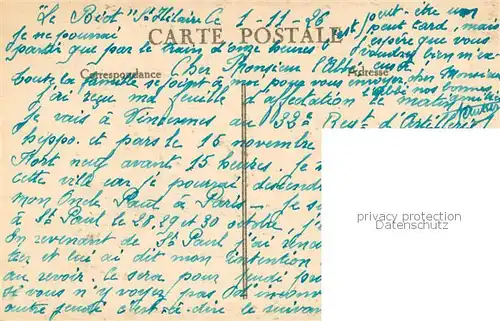 "Le Bidot" St Hilaire le 1-11-26
peut-être un
je ne pourrai
peut tard, mais
partir que par le train d'onze heures
j'espère que vous
CARTE POSTALE
voudrez bien m'
Correspondance
Adresse
Cher Monsieur l'Abbé
toute la famille se joint à moi pour vous envoyer cher Monsieur
l'abbé nos bonnes
J'ai reçu ma feuille d'affectation le matin
Je vais à Vincennes au 32e Regt d'Artillerie
hippo. et pars le 15 novembre
Fort neuf avant 15 heures. Je
cette ville car je pourrai descendre
mon Oncle Paul à Paris - Je
à St Paul le 28, 29 et 30 octobre, j'
En revenant de St Paul j'ai
et lui ai dit mon intention
au revoir. Ce sera pour jeudi
si vous n'y voyez pas d'
autre jeudi c'est-à-dire le suivant
privacy protection
Datenschutz